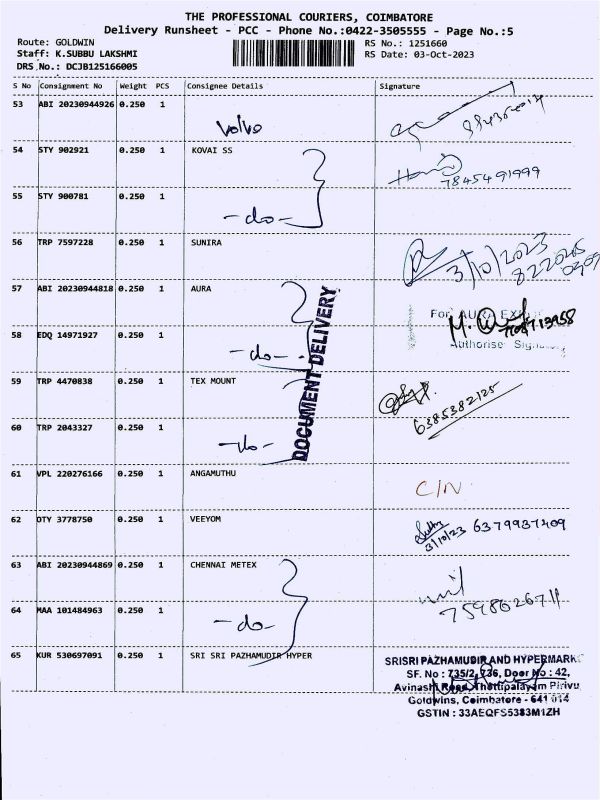 THE PROFESSIONAL COURIERS, COIMBATORE
Delivery Runsheet - PCC - Phone No.:0422-3505555 - Page No.:5
Route: GOLDWIN
Staff: K.SUBBU LAKSHMI
DRS No.: DCJB125166005
RS No.: 1251660
RS Date: 03-Oct-2023
S No Consignment No Weight PCS Consignee Details Signature
53 ABI 20230944926 0.250 1
Volvo
54 STY 902921 0.250 1 KOVAI SS
7845491999
55 STY 900781 0.250 1
-do-
56 TRP 7597228 0.250 1 SUNIRA
3/10/2023
57 ABI 20230944818 0.250 1 AURA
For AURA
58 EDQ 14971927 0.250 1
-do-
Authorise
DOCUMENT DELIVERY
59 TRP 4470838 0.250 1 TEX MOUNT
6385382125
60 TRP 2043327 0.250 1
-do-
61 VPL 220276166 0.250 1 ANGAMUTHU
C/N
62 OTY 3778750 0.250 1 VEEYOM
3/10/23 6379937409
63 ABI 20230944869 0.250 1 CHENNAI METEX
64 MAA 101484963 0.250 1
-do-
65 KUR 530697091 0.250 1 SRI SRI PAZHAMUDIR HYPER
SRISRI PAZHAMUDIR AND HYPERMARK
SF. No : 735/2, 736, Door No : 42,
Avinashi Road, Thottipalayam Pirivu,
Goldwins, Coimbatore - 641 014
GSTIN : 33AEQFS5383M1ZH